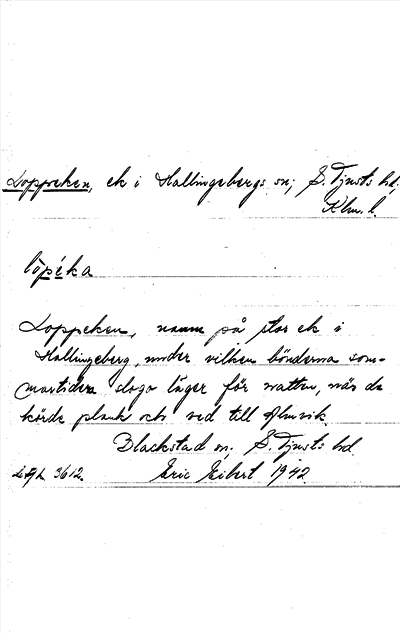 Loppeken, ek i Hallingebergs sn; S. Tjusts hd,
Klm. l.
löpéka
Loppeken, namn på stor ek i
Hallingeberg, under vilken bönderna som-
martiden slogo läger för natten, när de
körde plank och ved till Almvik.
Blackstad sn, S. Tjusts hd
3612. Eric Eibert 1942